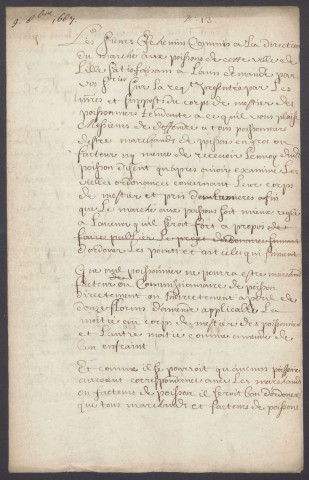 9. 8bre 1687
N° 13
Les sieurs Commis a La direction
du marché aux poissons de cette ville de
Lille satisfaisant a L'avis demandé par
vos Sries Sur La reqte presentée par Les
mres et supposts du corps de mestier des
poissonniers tendante a ce qu'il vous plaise
Messieurs de deffendre a tous poissonniers
d'estre marchands de poisson en gros ou
facteurs ny meme de recevoir Lenvoy dudt
poisson disent qu'apres avoir examiné Les
vielles ordonances concernant Leur corps
de mestier et pris afin
que Le marché aux poissons soit mieux reglé
a L'avenir qu'il seroit fort a propos de
faire publier Le projet
d'ordonner Les points et articles qui suivent
Que nul poissonnier ne poura estre marchand
facteur ou Commissionnaire de poisson
directement ou indirectement a peril de
douze florins d'amende applicable La
moitié au corps de mestier des poissonniers
et L'autre moitié comme amende de
ban enfraint
Et comme il se pourroit qu'aucuns poissonniers
auroient correspondence avec Les marchands
ou facteurs de poisson il seroit bon d'ordonner
que tous marchands et facteurs de poissons